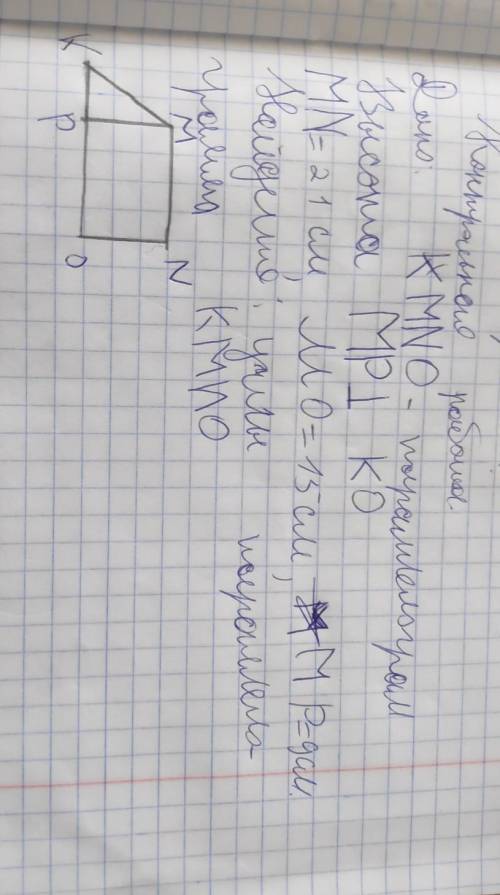 Контрольная работа.
Дано: KMNO - параллелограм
Высота MP⊥ KO
MN = 21 см, NO = 15 см, MP = 9см.
Найдите: углы параллело-
грамма KMNO
K
P
O
M
N